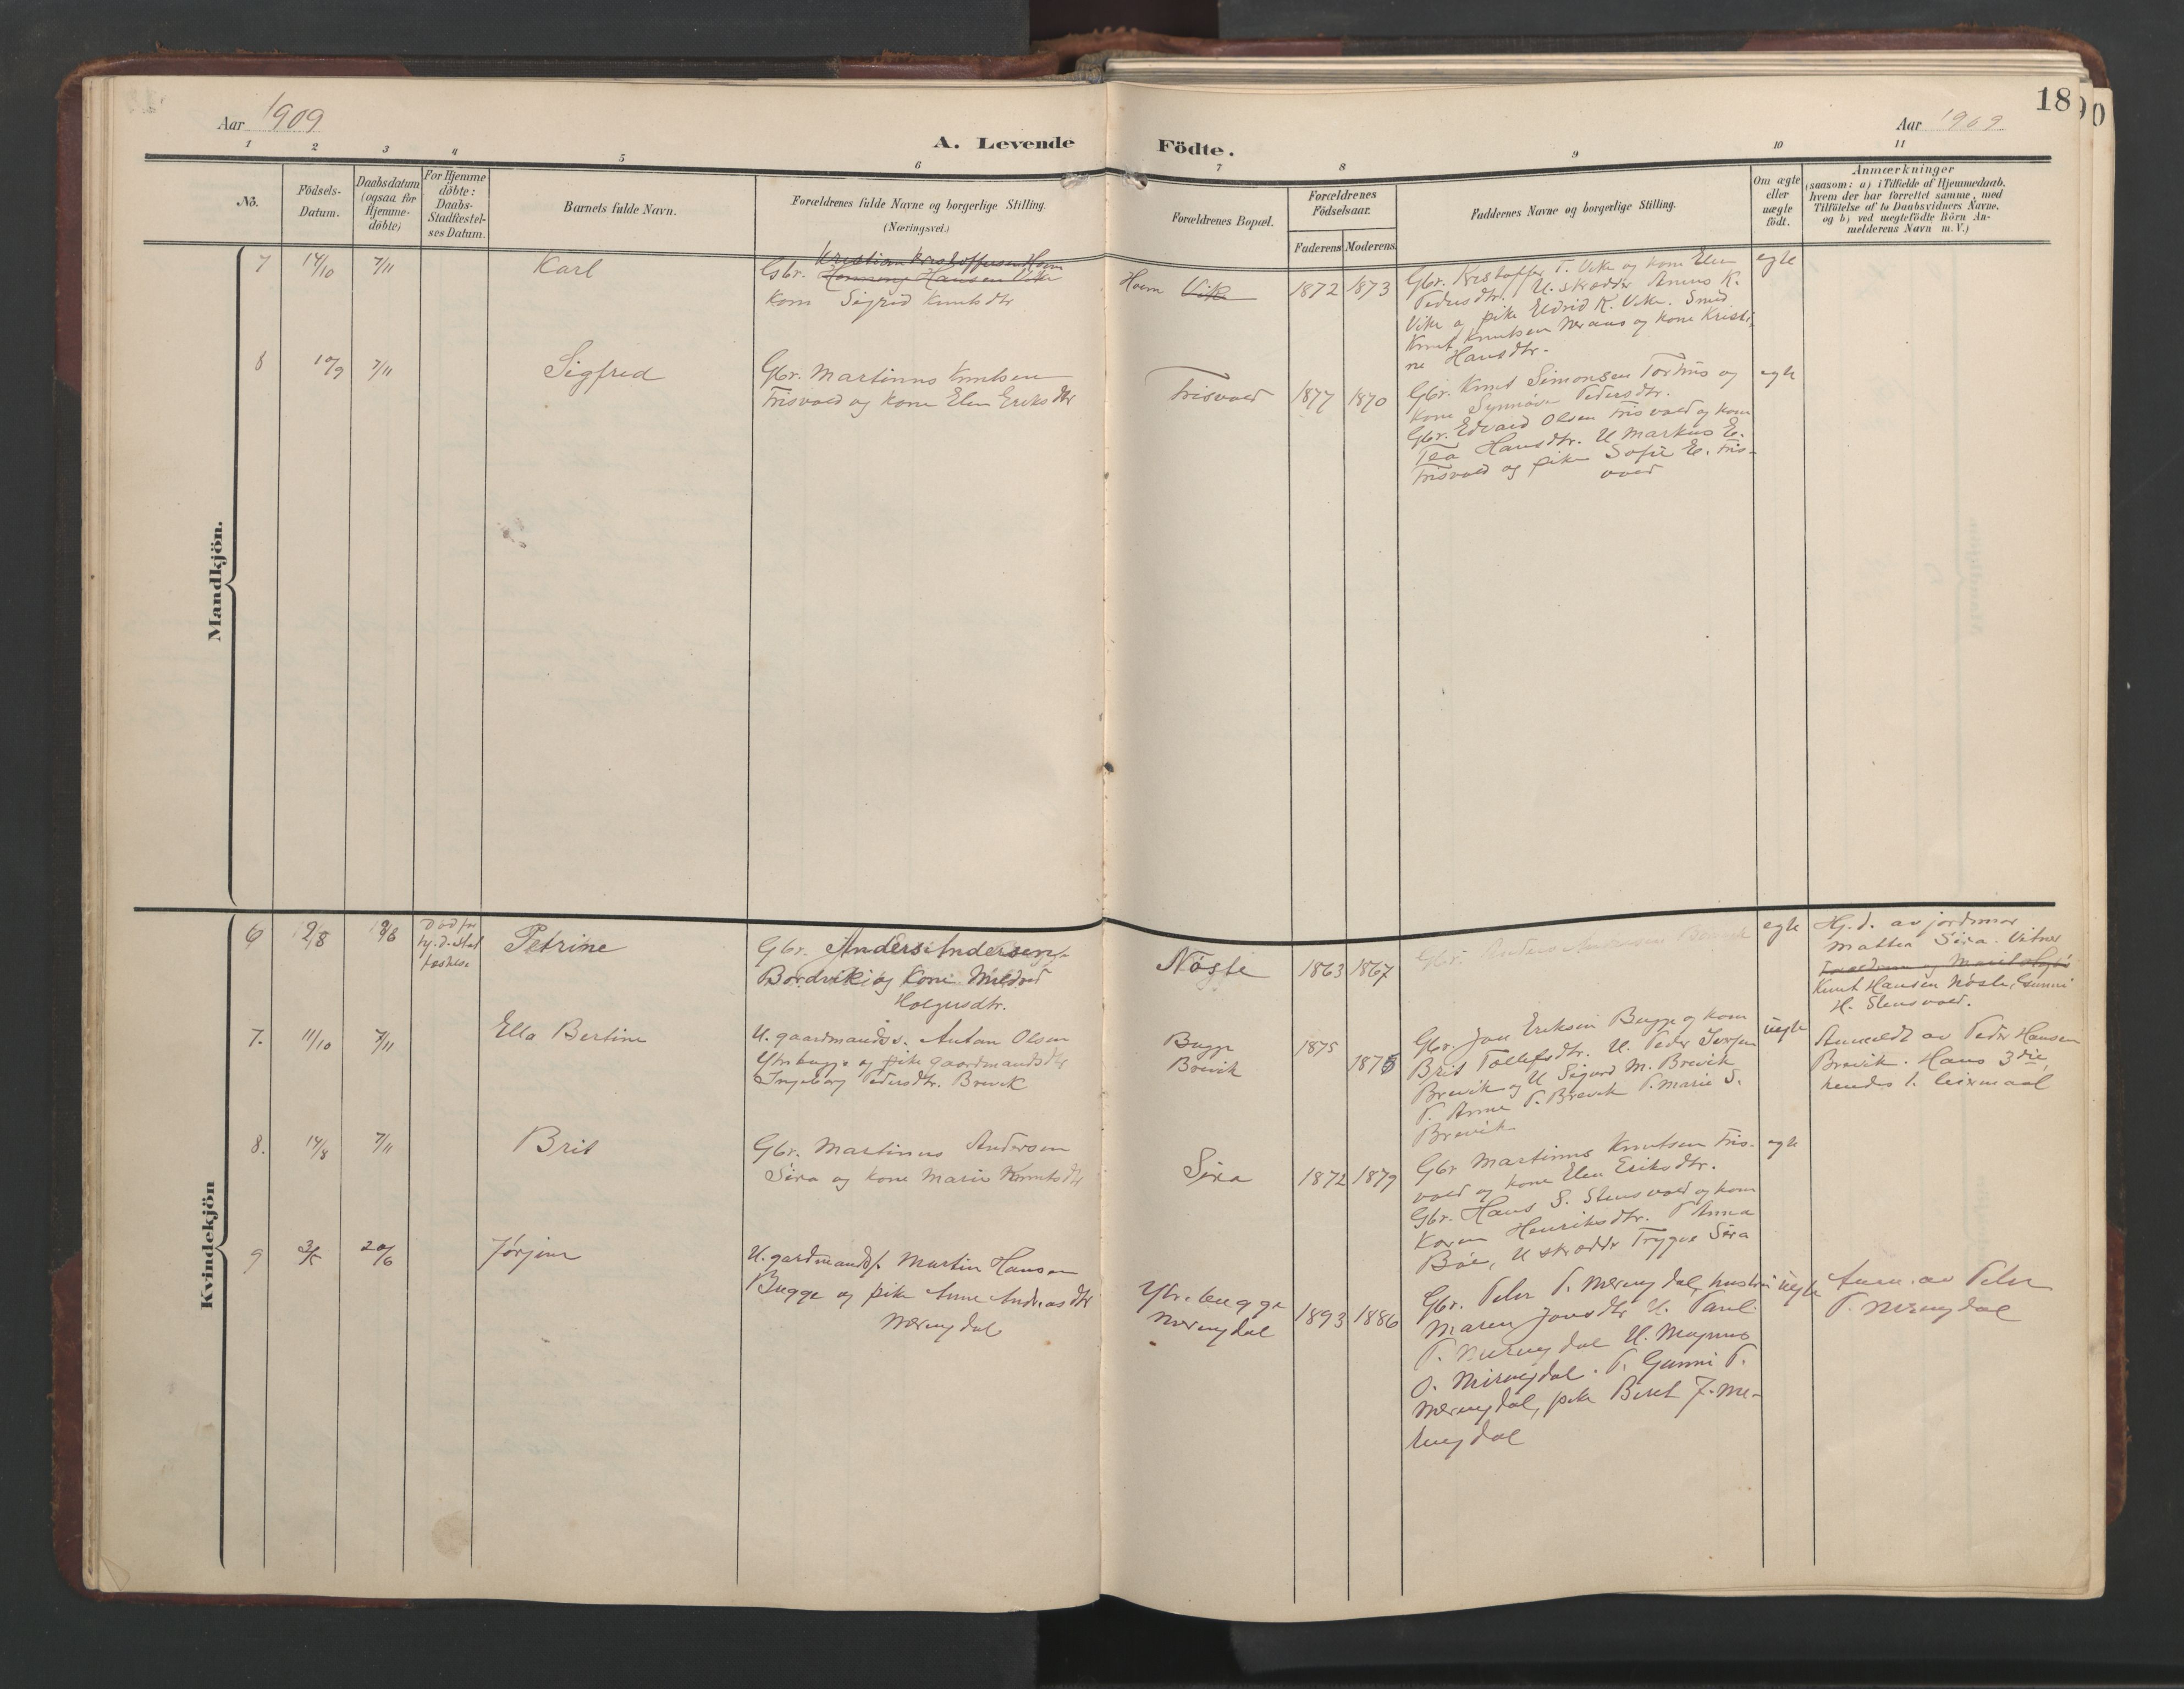 18
Aar 1909
A. Levende Födte.
Aar 1909
1 2 3 4 5 6 7 8 9 10 11
Nö.
Födsels-Datum.
Daabsdatum (ogsaa for Hjemmedöbte)
For Hjemmedöbte: Daabs-Stadfæstelses Datum.
Barnets fulde Navn.
Forældrenes fulde Navne og borgerlige Stilling.
(Næringsvei.)
Forældrenes Bopæl.
Forældrenes Födselsaar.
Faderens Moderens
Faddernes Navne og borgerlige Stilling.
Om ægte eller uægte födt.
Anmærkninger
(saasom: a) i Tilfælde af Hjemmedaab,
hvem der har forrettet samme, med
Tilföielse af to Daabsvidners Navne,
og b) ved uegtefödte Börn An-
melderens Navn m. V.)
Mandkjön.
7 14/10 7/11 Karl
Kristian Kristoffersen Hoem
Gbr. Hemming Hansen Vike
kone Sigrid Knutsdtr
Hoem Vike 1872 1873
Gbr. Kristoffer T. Vike og kone Elen
Pedersdtr. U. skrædder Anens K.
Vike og pike Eldrid K. Vike. Smed
Knut Knutsen Neraas og kone Kristi-
ne Hansdtr.
egte
8 10/9 7/11 Sigfred
Gbr. Martinus Knutsen
Frisvold og kone Elen Eriksdtr
Frisvold 1877 1870
Gbr. Knut Simonsen Torhus og
kone Synnöve Pedersdtr.
Gbr. Edvard Olsen Frisvold og kone
Tea Hansdtr. U Markus E.
Frisvold og pike Sofie E. Fris-
vold
egte
Kvindekjön
6 9/8 9/8 Död för
hj. d. stad
fæstelse
Petrine
Gbr. Anders Andersen
Bordvik og kone Mildrid
Holgersdtr.
Nöste 1863 1867
Gbr. Anders Andersen
egte
Hj.d. av jordmor
Mattea Sira. Vitner
Knut Hansen Nöste, Gunni
H. Stensvold.
7. 11/10 7/11 Ella Bertine
U. gaardmandss. Anton Olsen
Ytrebugge og pike gaardmandsdtr
Ingeborg Pedersdtr. Brevik
Bugge
Brevik
1875 1875
Gbr. Jon Eriksen Bugge og kone
Brit Tollefsdtr. U. Peder Iversen
Brevik og U Sigurd M. Brevik
P. Anne P. Brevik P. Marie S.
Brevik
uegte
Anmeldt av Peder Hansen
Brevik. Hans 3die,
hendes 1. leiermaal
8. 14/8 7/11 Brit
Gbr. Martinus Andersen
Sira og kone Marie Knutsdtr
Sira 1872 1879
Gbr Martinus Knutsen Fris-
vold og kone Elen Eriksdtr.
Gbr. Hans S. Stensvold og kone
Karen Henriksdtr. P Anna
Böe, U skrædder Trygve Sira
egte
9 3/5 20/6 Jörjine
U. gardmandss. Martin Hansen
Bugge og pike Anne Andreasdtr
Meringdal
Ytr. bugge
Meringdal
1893 1886
Gbr. Peder P. Meringdal, hustru
Maren Jonsdtr U. Paul
P. Meringdal U. Magnus
O. Meringdal. P. Gunni P.
Meringdal, pike Beret J. Me-
ringdal
uegte
Anm. av Peder
P. Meringdal